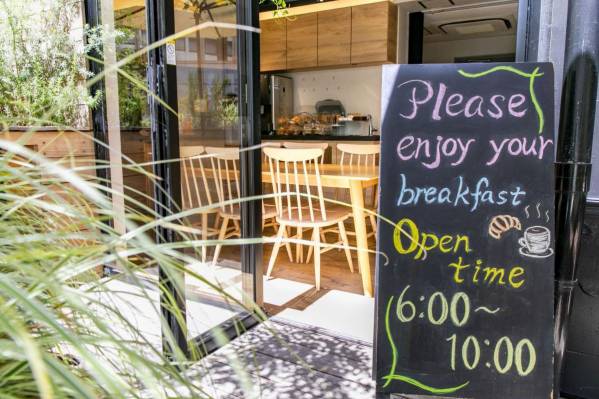 Please
enjoy your
breakfast
Open
time
6:00~
10:00